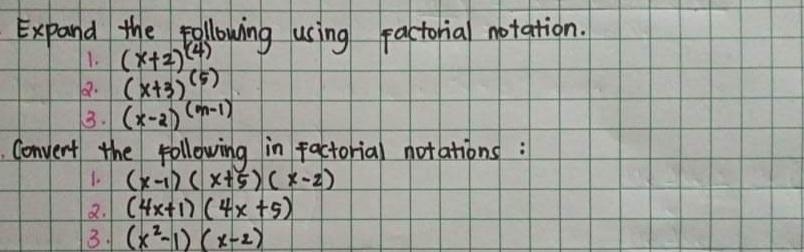 Expand the following using factorial notation.
1. (x+2)^(4)
2. (x+3)^(5)
3. (x-2)^(m-1)
Convert the following in factorial notations :
1. (x-1)(x+5)(x-2)
2. (4x+1)(4x+5)
3. (x²-1)(x-2)